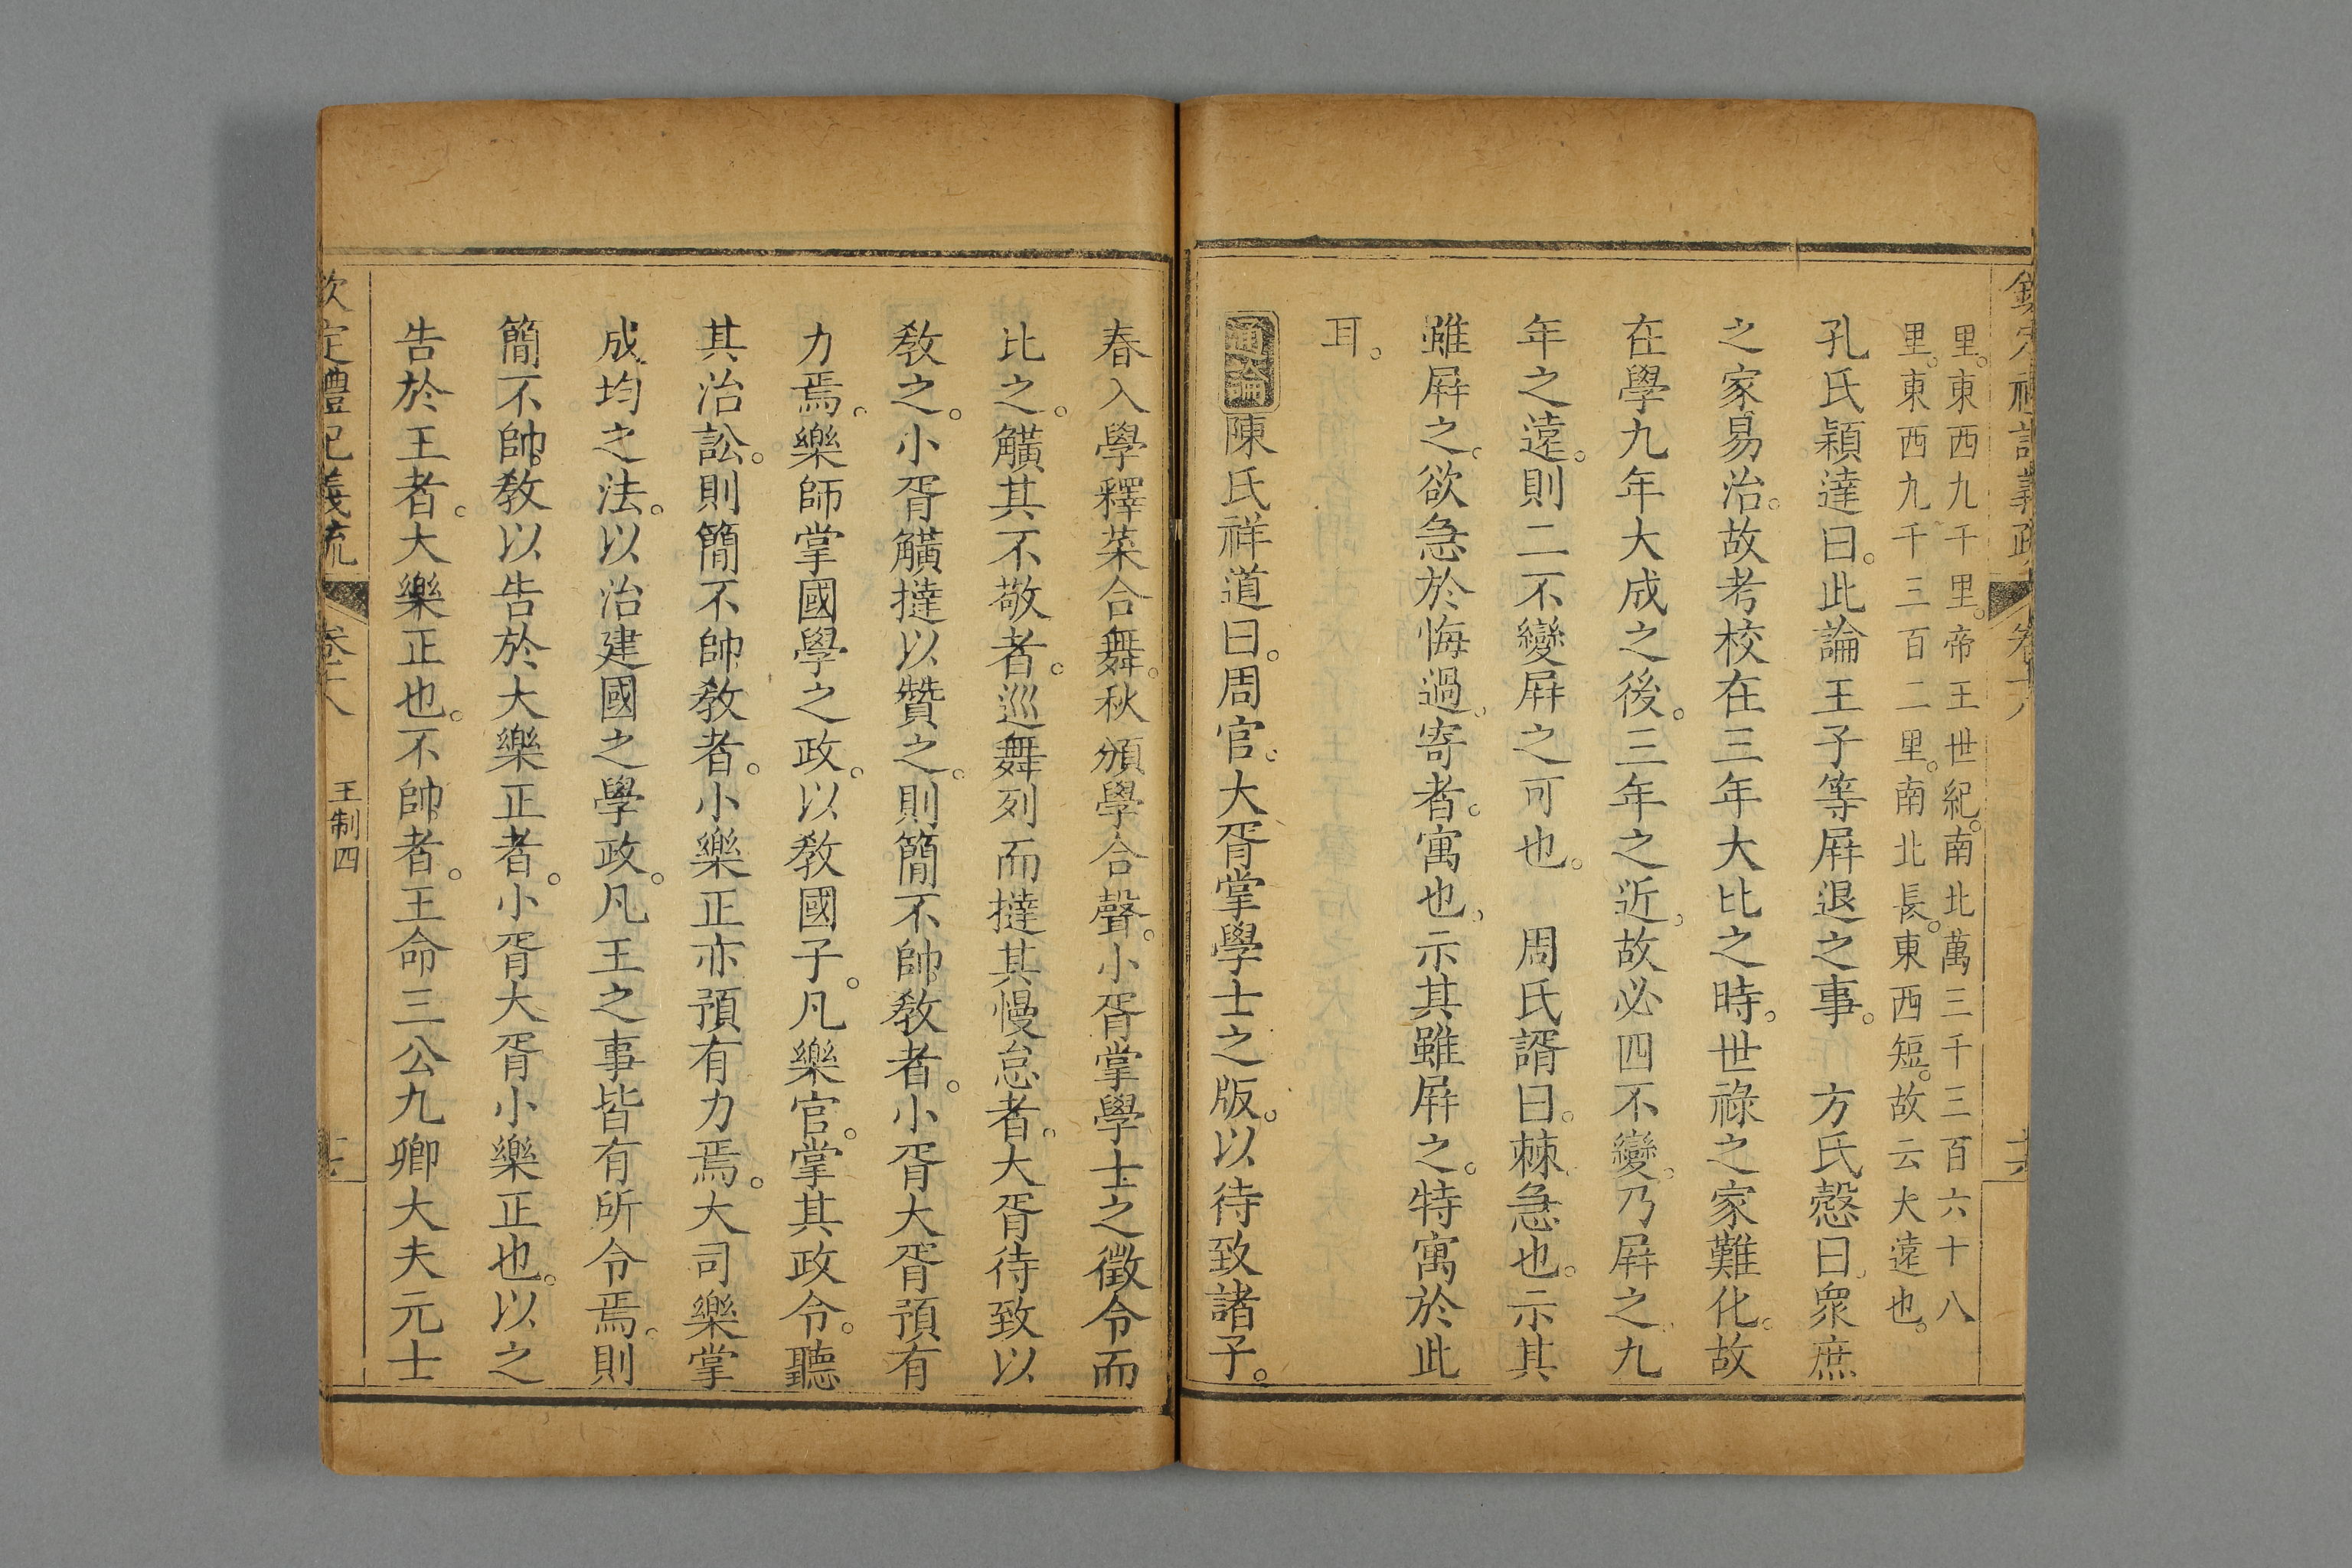 里。東西九千里。帝王世紀。南北萬三千三百六十八
里。東西九千三百二里。南北長。東西短。故云大遠也。
孔氏穎達曰。此論王子等屏退之事。　方氏慤曰。眾庶
之家易治。故考校在三年大比之時。世祿之家難化。故
在學九年大成之後。三年之近。故必四不變。乃屏之。九
年之遠。則二不變屏之可也。　周氏諝曰。棘急也。示其
雖屏之。欲急於悔過。寄者。寓也。示其雖屏之。特寓於此
耳。
通論陳氏祥道曰。周官。大胥掌學士之版。以待致諸子。
春入學釋菜合舞。秋頒學合聲。小胥掌學士之徵令而
比之。觵其不敬者。巡舞列而撻其慢怠者。大胥待致以
教之。小胥觵撻以贊之。則簡不帥教者。小胥大胥預有
力焉。樂師掌國學之政。以教國子。凡樂官。掌其政令。聽
其治訟。則簡不帥教者。小樂正亦預有力焉。大司樂掌
成均之法。以治建國之學政。凡王之事皆有所令焉。則
簡不帥教以告於大樂正者。小胥大胥小樂正也。以之
告於王者。大樂正也。不帥者。王命三公九卿大夫元士
欽定禮記義疏
卷十八
王制四